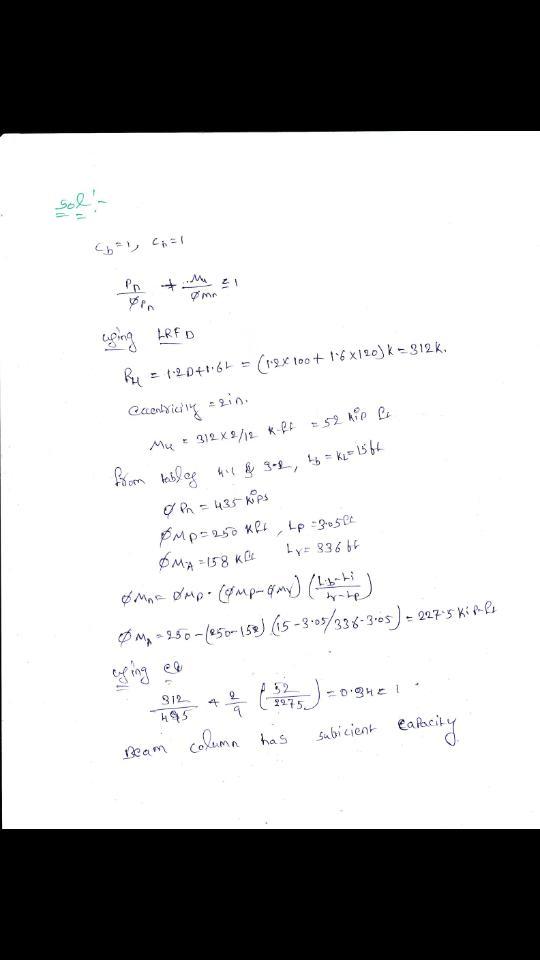 Sol:-
Cb=1, Cb=1
Pn/ØPn + Mu/ØMn ≤ 1
using LRFD
Pu = 1.2D+1.6L = (1.2×100+1.6×120)k = 312k.
Eccentricity = 2in.
Mu = 312×2/12 k-ft = 52 kip ft
from tables 4.1 & 3.2, Lb = KL=15ft
ØPn = 435 kips
ØMp=250 kft, Lp=3.05ft
ØMA=158 kft Lr=336ft
ØMn=ØMp-(ØMp-ØMr)(Lb-Li/Lr-Lp)
ØMn=250-(250-158)(15-3.05/336-3.05)=227.5 kip-ft
using eq
312/495 + 2/9 (52/2275) = 0.94≤1.
Beam column has subicient capacity